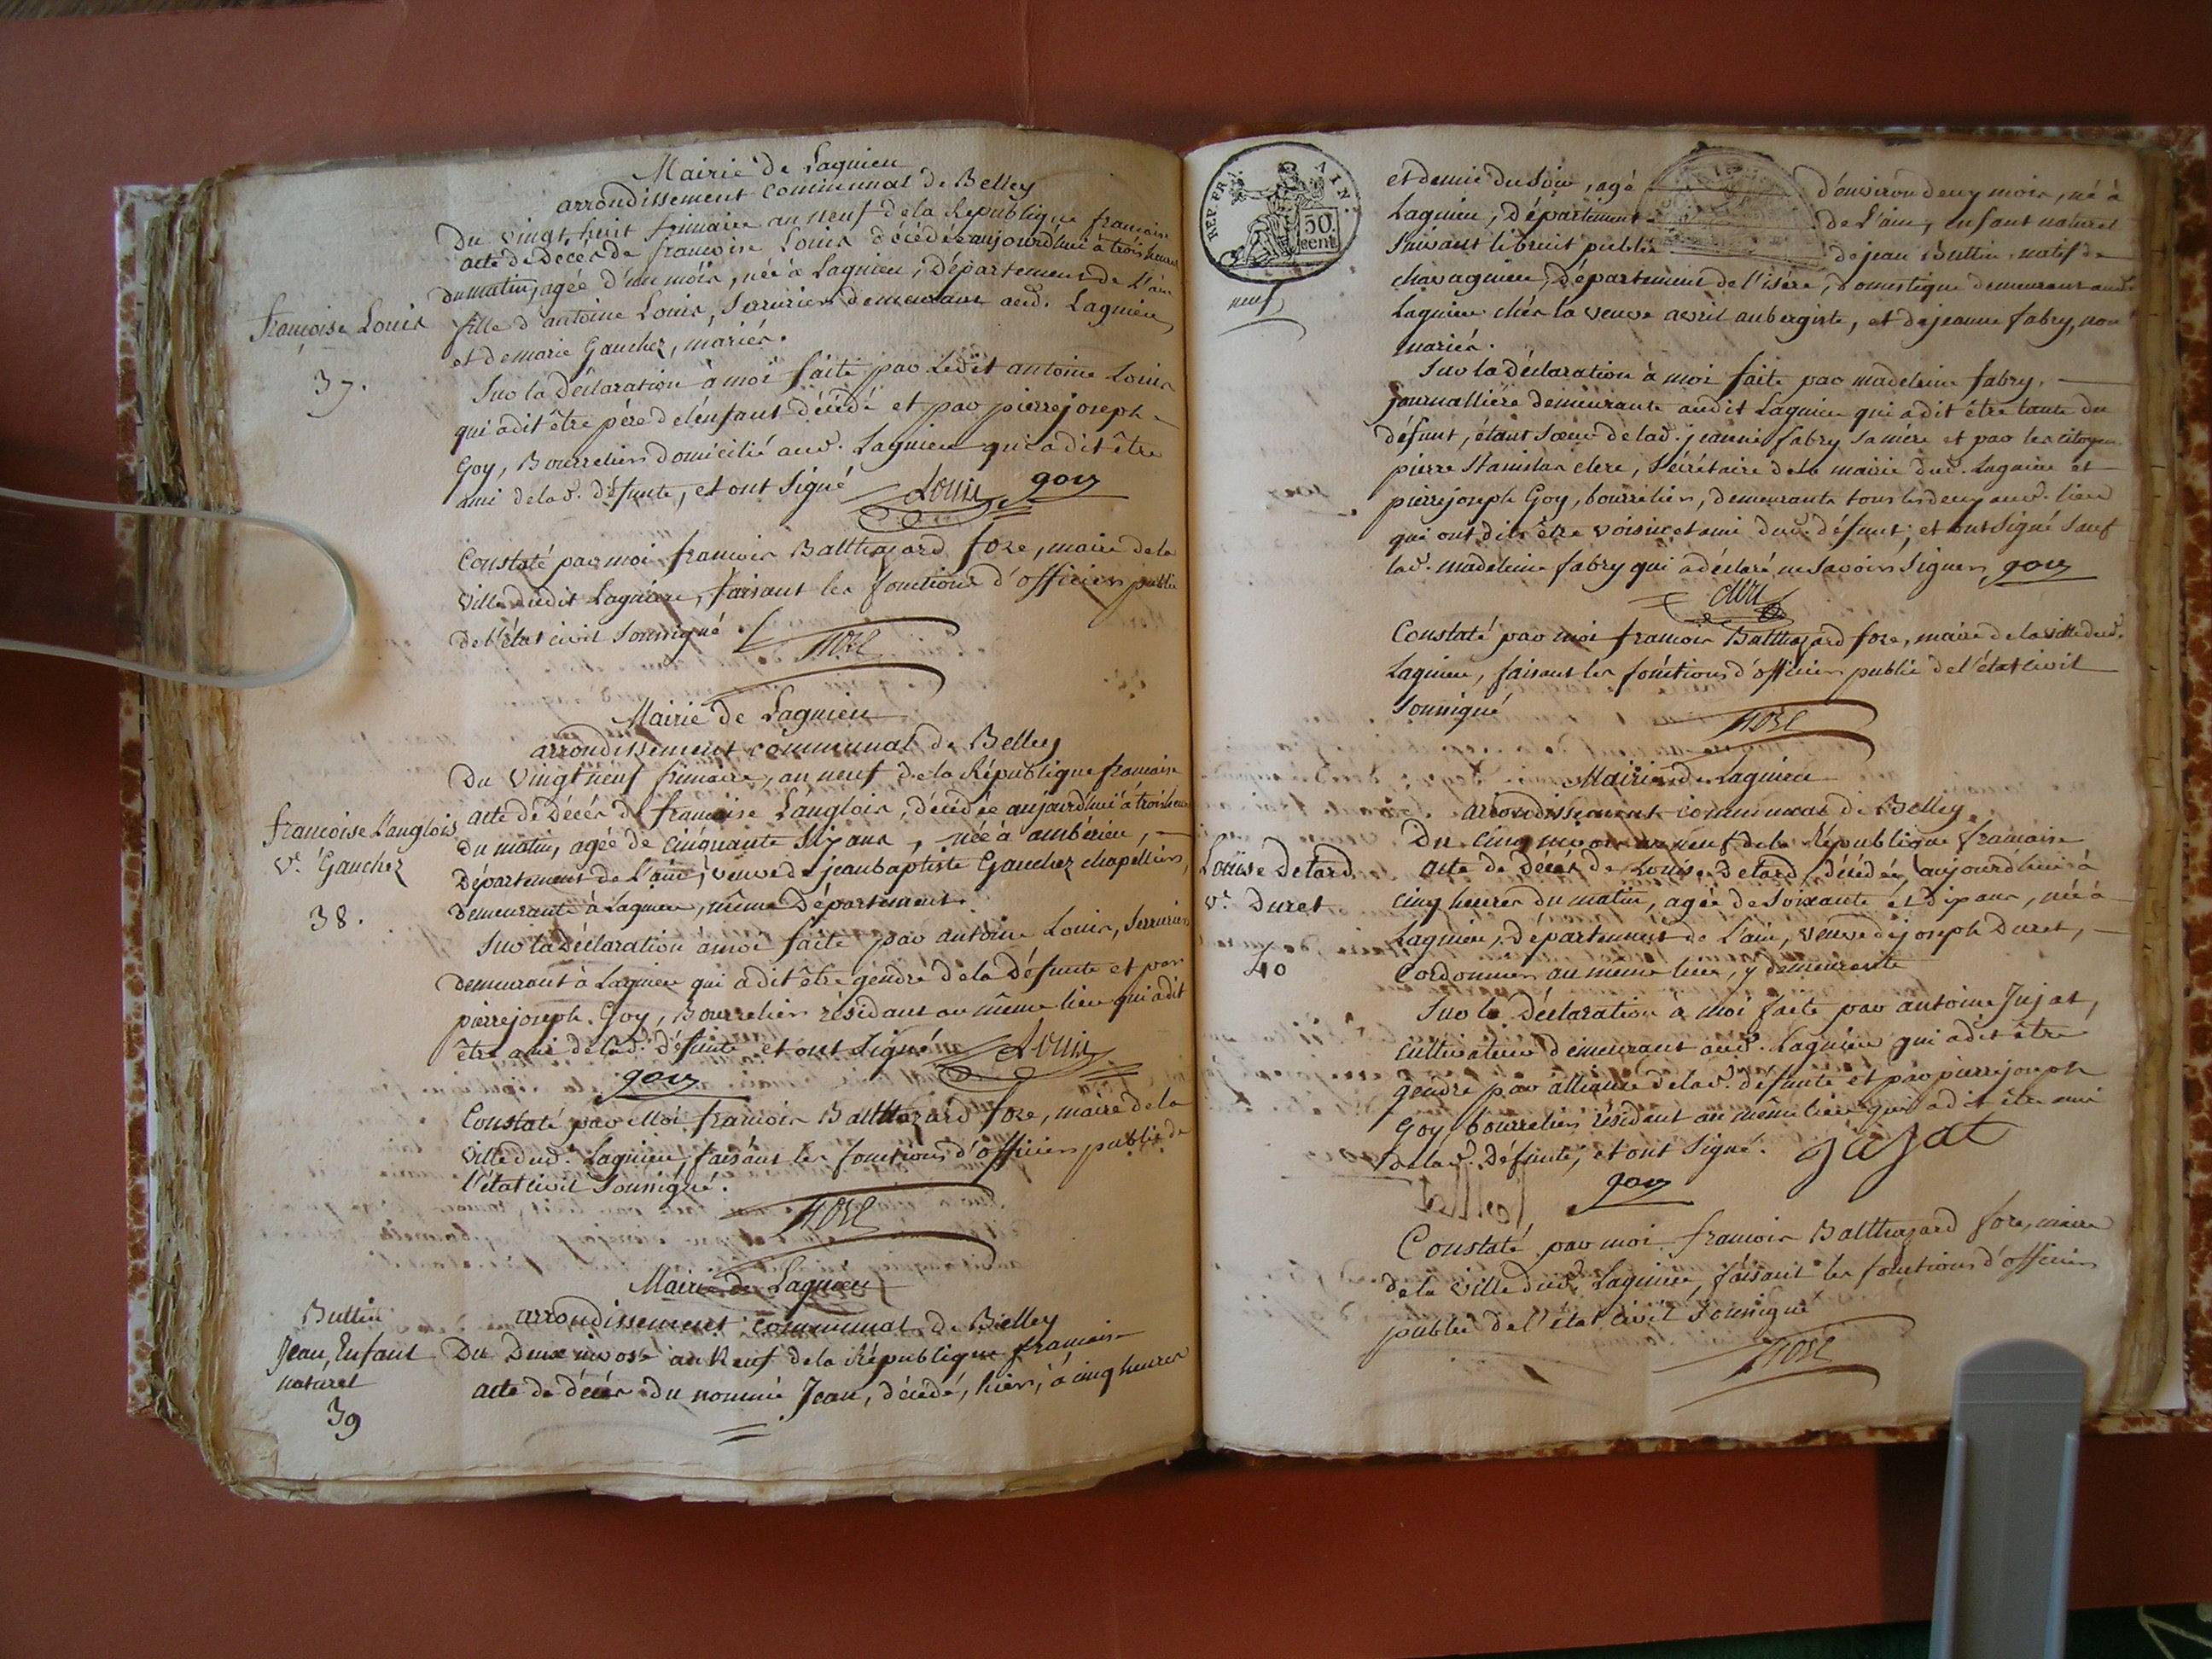 Mairie de Lagnieu
arrondissement communal de Belley
Du vingt huit frimaire an neuf de la République francaise
acte de Décès de francoise Louis décédée aujourd'hui à trois heures
du matin, agée d'un mois, née à Lagnieu, Département de L'ain
fille d'antoine Louis, Serrurier demeurant aud. Lagnieu,
et de marie Gauchez, mariés.
françoise Louis
37.
Sur la Déclaration à moi faite par Ledit antoine Louis
qui a dit être père de l'enfant décédé et par pierre joseph
Goy, Bourrelier domicilié aud. Lagnieu qui a dit être
ami de lad. défunte, et ont Signé Louis goy
Constaté par moi francois Balthazard fore, maire de la
ville dudit Lagnieu, faisant les fonctions d'officier public
de l'état civil soussigné. fore
Mairie de Lagnieu
arrondissement communal de Belley
Du Vingt neuf frimaire, an neuf de la République francaise
acte de Décès de francoise Langlois, décédée aujourd'hui à trois heures
du matin, agée de cinquante six ans, née à ambérieu,
Département de L'ain, veuve de jean baptiste Gauchez chapellier,
demeurante à Lagnieu, même Département.
francoise Langlois
Ve. Gauchez
38.
Sur la Déclaration à moi faite par antoine Louis, Serrurier
demeurant à Lagnieu qui a dit être gendre de la Défunte et par
pierre joseph Goy, Bourrelier résidant au même lieu qui a dit
être ami de lad. défunte et ont Signé Louis
goy
Constaté par Moi francois Balthazard fore, maire de la
ville dud. Lagnieu, faisant les fonctions d'officier public de
l'état civil Soussigné.
fore
Mairie de Lagnieu
arrondissement communal de Belley
Du Deux nivose an Neuf de la République francaise
acte de décès du nommé Jean, décédé, hier, à cinq heures
Buttin
Jean, Enfant
naturel
39
REP. FRA. AIN.
50
cent.
neuf
et demie du Soir, agé d'environ deux mois, né à
Lagnieu, Département de L'ain, enfant naturel
Suivant le bruit public de jean Buttin, natif de
chavagnieu, Département de l'isère, domestique demeurant aud.
Lagnieu chés la veuve avril aubergiste, et de jeanne fabry, non
mariés.
Sur la déclaration à moi faite par madeleine fabry,
journallière demeurante audit Lagnieu qui a dit être tante du
défunt, étant sœur de lad. jeanne fabry sa mère et par les citoyens
pierre Stanislas clerc, Sécrétaire de la mairie dud. Lagnieu et
pierre joseph Goy, bourrelier, demeurants tous les deux aud. lieu
qui ont dit être voisin et ami dud. défunt; et ont Signé Sauf
lad. madeleine fabry qui a déclaré ne savoir Signer goy
clerc
Constaté par moi francois Balthazard fore, maire de la ville dud.
Lagnieu, faisant les fonctions d'officier public de l'état civil
Soussigné
fore
Mairie de Lagnieu
arrondissement communal de Belley
Du cinq nivose an neuf de la République francaise
acte de décès de Louise Detard, décédée, aujourd'hui à
cinq heures du matin, agée de soixante et dix ans, née à
Lagnieu, Département de L'ain, veuve de joseph Duret,
Cordonnier au même lieu, y demeurante
Louise Detard
ve. Duret
40
Sur la Déclaration à moi faite par antoine Jujat,
cultivateur demeurant aud. Lagnieu qui a dit être
gendre par alliance de lad. défunte et par pierre joseph
Goy bourrelier résidant au même lieu qui a dit être ami
de lad. Défunte, et ont Signé. jujat
goy
Constaté par moi francois Balthazard fore, maire
de la ville dud. Lagnieu, faisant les fonctions d'officier
public de l'état civil soussigné
fore